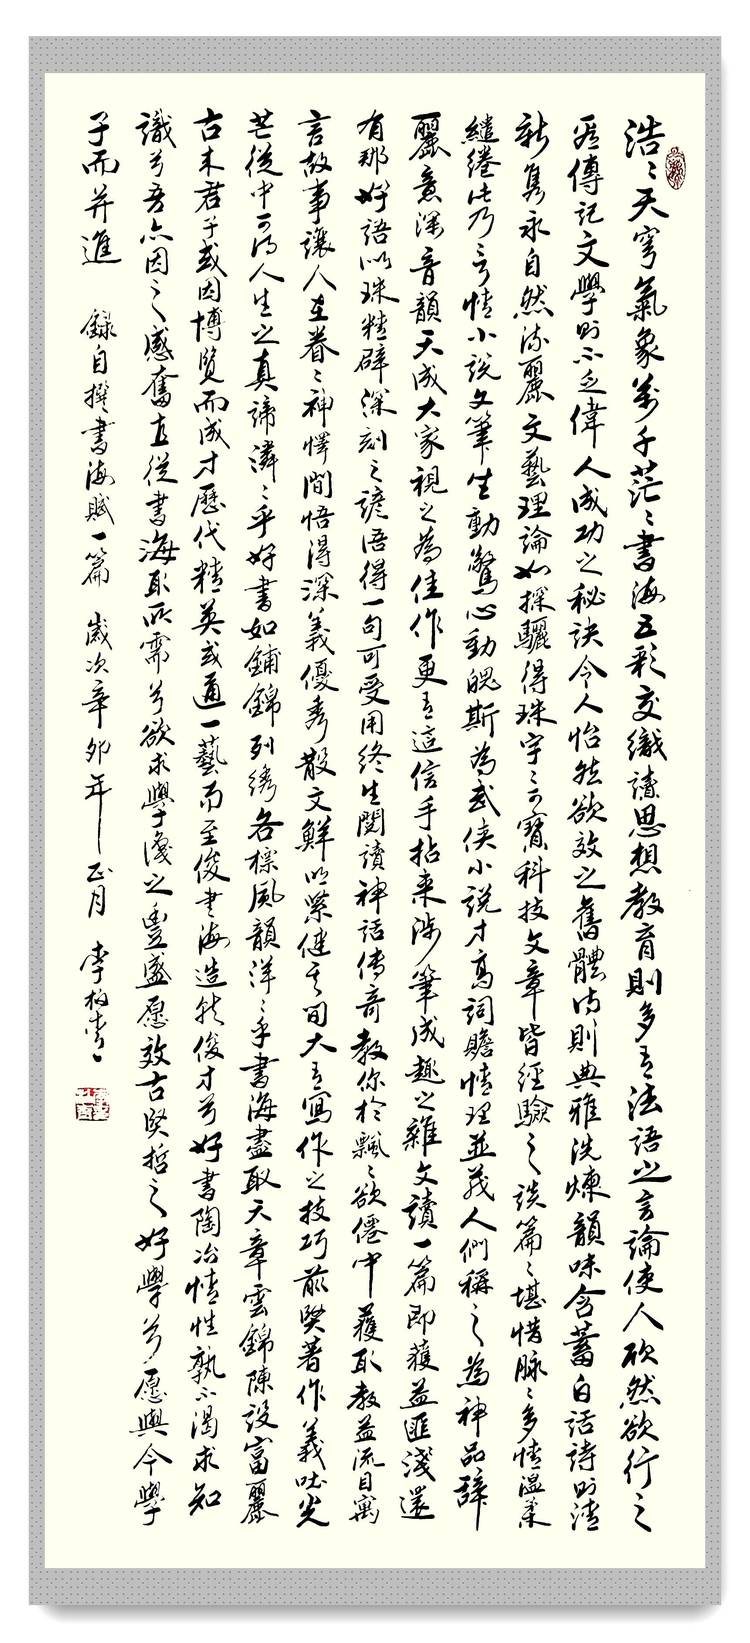 浩浩天穹氣象萬千茫茫書海五彩交織讀思想教育則多有法語之言論使人欣然欲行之
若傳記文學則不乏偉人成功之秘訣令人怡然欲效之舊體詩則典雅洗煉韻味含蓄白話詩則清
新雋永自然流麗文藝理論如探驪得珠字字可寶科技文章皆經驗之談篇篇堪惜脉脉多情温柔
繾綣此乃言情小說文筆生動驚心動魄斯為武俠小說才高詞贍情理並茂人們稱之為神品辭
麗意深音韻天成大家視之為佳作更有這信手拈来涉筆成趣之雜文讀一篇即獲益匪淺還
有那妙語似珠精辟深刻之諺語得一句可受用终生閱讀神話传奇教你於飄飄欲僊中獲取教益流目寓
言故事讓人在眷眷神懌間悟得深義優秀散文鮮明緊健其间大有寫作之技巧前賢著作義吐光
芒從中可得人生之真諦潾潾乎好書如鋪錦列绣各標風韻洋洋乎書海盡取天章雲錦陳設富麗
古未君子或因博覽而成才歷代精英或通一藝而至俊書海造就俊才兮好書陶冶情性孰不渴求知
識兮吾亦因之感奮直從書海取所需兮欲求學識之豊盛愿效古賢哲之好學兮愿與今學
子而并進 録自撰書海賦一篇 歲次辛卯年正月 李柏青